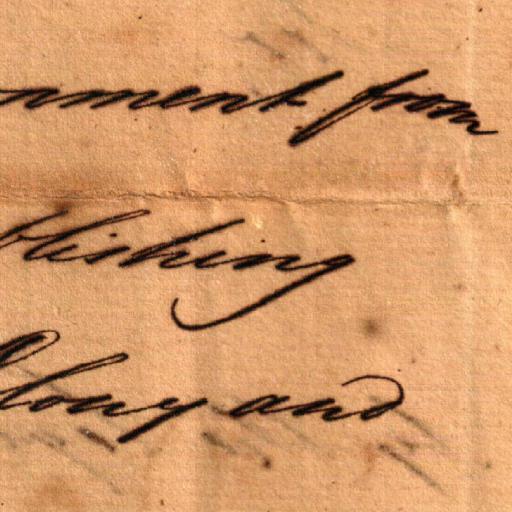 nment from
blishing
lony and